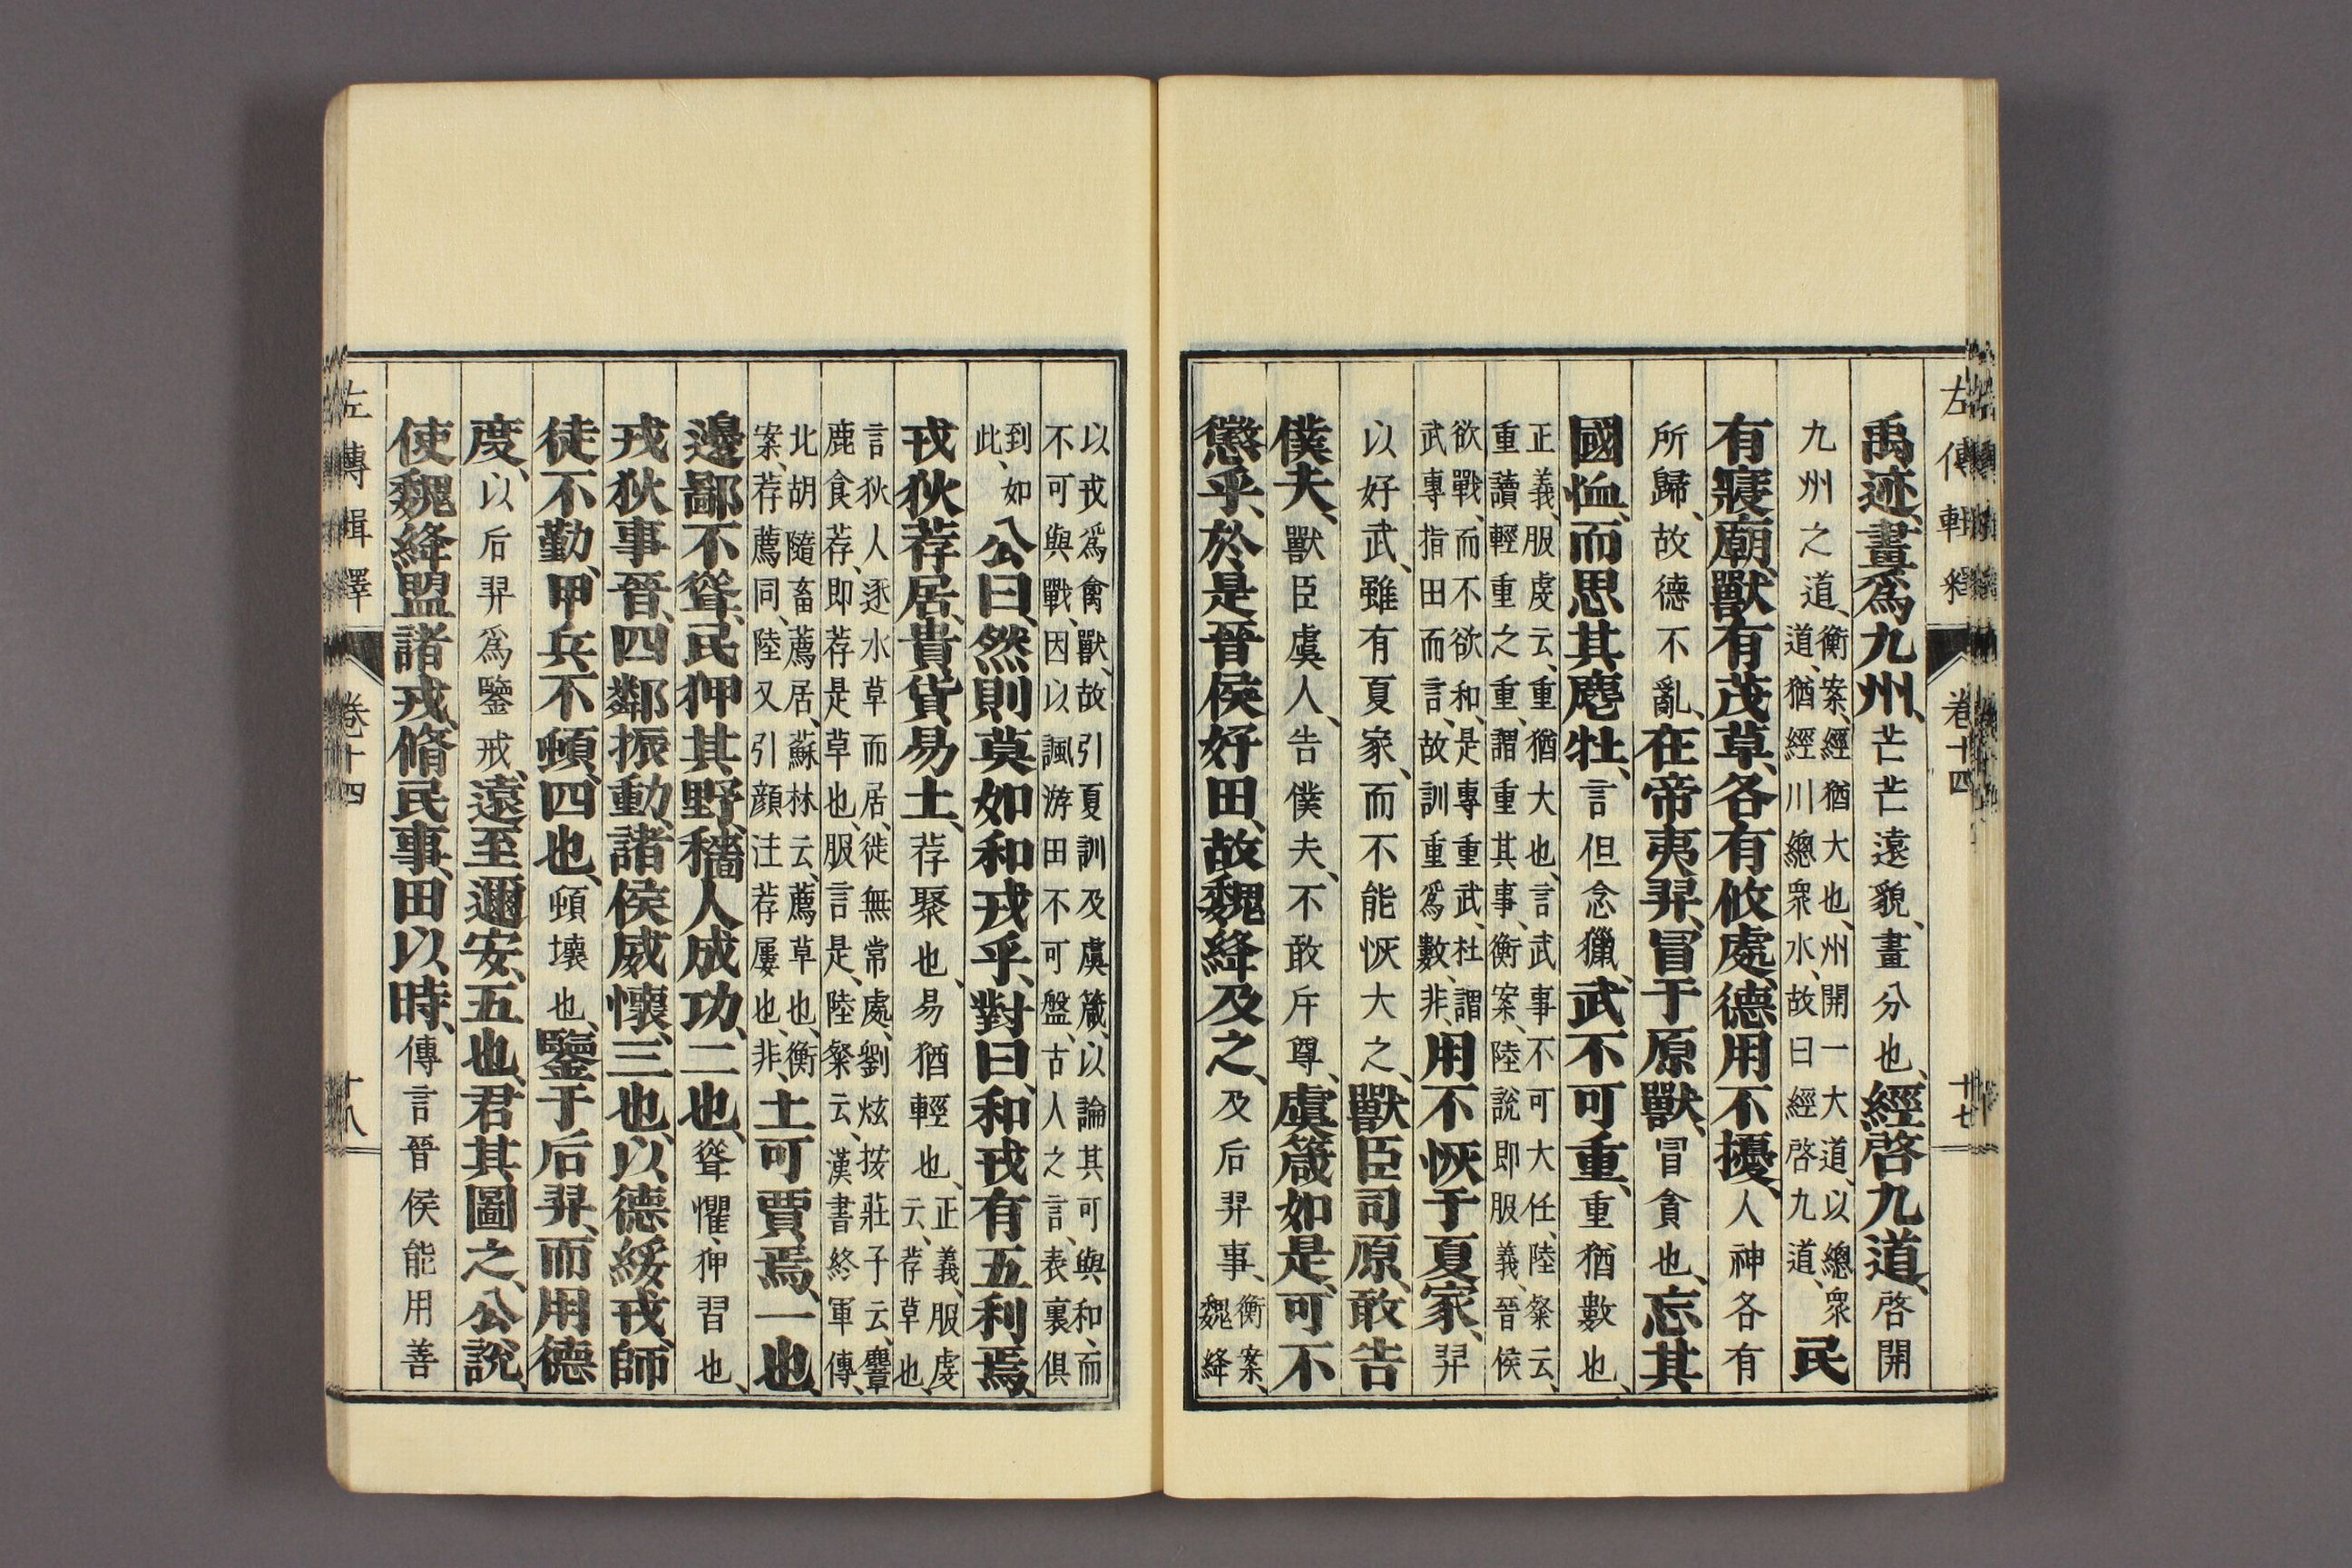 左傳輯釋 卷十四 十七
禹迹、畫爲九州、芒芒遠貌、畫分也、經啓九道、啓開
九州之道、衡案、經猶大也、州開一大道、以總衆道、猶經川總衆水、故曰經啓九道、民
有寢廟、獸有茂草、各有攸處、德用不擾、人神各有
所歸、故德不亂、在帝夷羿、冒于原獸、冒貪也、忘其
國恤、而思其麀牡、言但念獵、武不可重、重猶數也、
正義、服虔云、重猶大也、言武事不可大任、陸粲云、重讀輕重之重、謂重其事、衡案、陸說即服義、晉侯
欲戰、而不欲和、是專重武、杜謂武專指田而言、故訓重爲數、非、用不恢于夏家、羿
以好武、雖有夏家、而不能恢大之、獸臣司原、敢告
僕夫、獸臣虞人、告僕夫、不敢斥尊、虞箴如是、可不
懲乎、於是晉侯好田、故魏絳及之、及后羿事、衡案、魏絳
以戎爲禽獸、故引夏訓及虞箴、以論其可與和、而不可與戰、因以諷游田不可盤、古人之言、表裏俱
到如此、公曰、然則莫如和戎乎、對曰、和戎有五利焉、
戎狄荐居、貴貨易土、荐聚也、易猶輕也、正義、服虔云、荐草也、
言狄人逐水草而居、徙無常處、劉炫按莊子云、麋鹿食荐、即荐是草也、服言是、陸粲云、漢書終軍傳、
北胡隨畜薦居、蘇林云、薦草也、衡案、荐薦同、陸又引顔注荐屢也、非、土可賈焉、一也、
邊鄙不聳、民狎其野、穡人成功、二也、聳懼、狎習也、
戎狄事晉、四鄰振動、諸侯威懷、三也、以德綏戎、師
徒不勤、甲兵不頓、四也、頓壞也、鑒于后羿、而用德
度、以后羿爲鑒戒、遠至邇安、五也、君其圖之、公說、
使魏絳盟諸戎、脩民事、田以時、傳言晉侯能用善
左傳輯釋 卷十四 十八